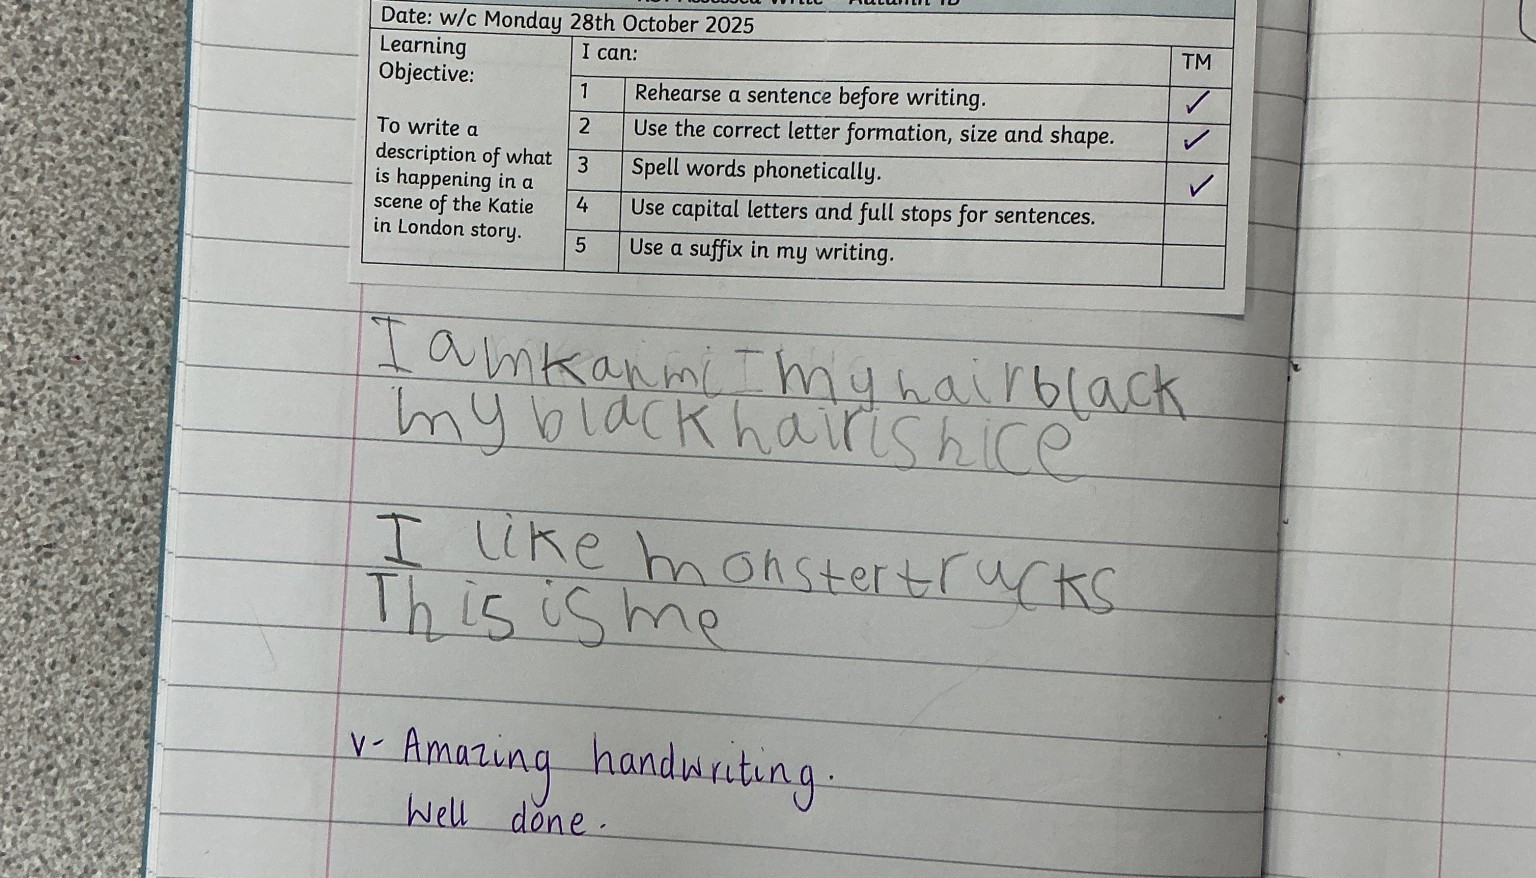 Date: w/c Monday 28th October 2025
Learning Objective:
To write a description of what is happening in a scene of the Katie in London story.
I can:
TM
1 Rehearse a sentence before writing. ✓
2 Use the correct letter formation, size and shape. ✓
3 Spell words phonetically. ✓
4 Use capital letters and full stops for sentences.
5 Use a suffix in my writing.
I am kanmi I my hair black
my black hair is nice
I like monster trucks
This is me
v- Amazing handwriting.
Well done.